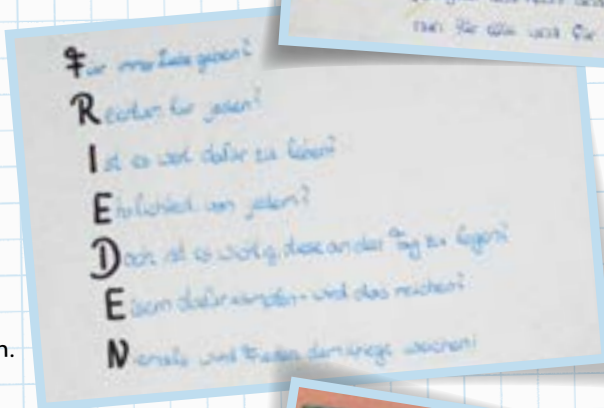 für alle und für
Für immer Liebe geben?
Reichtum für jeden?
Ist es wert dafür zu leben?
Ehrlichkeit von jedem?
Doch ist es wichtig, diese an den Tag zu legen?
Eisern dafür kämpfen - wird das reichen?
Niemals wird Frieden dem Kriege weichen!
n.